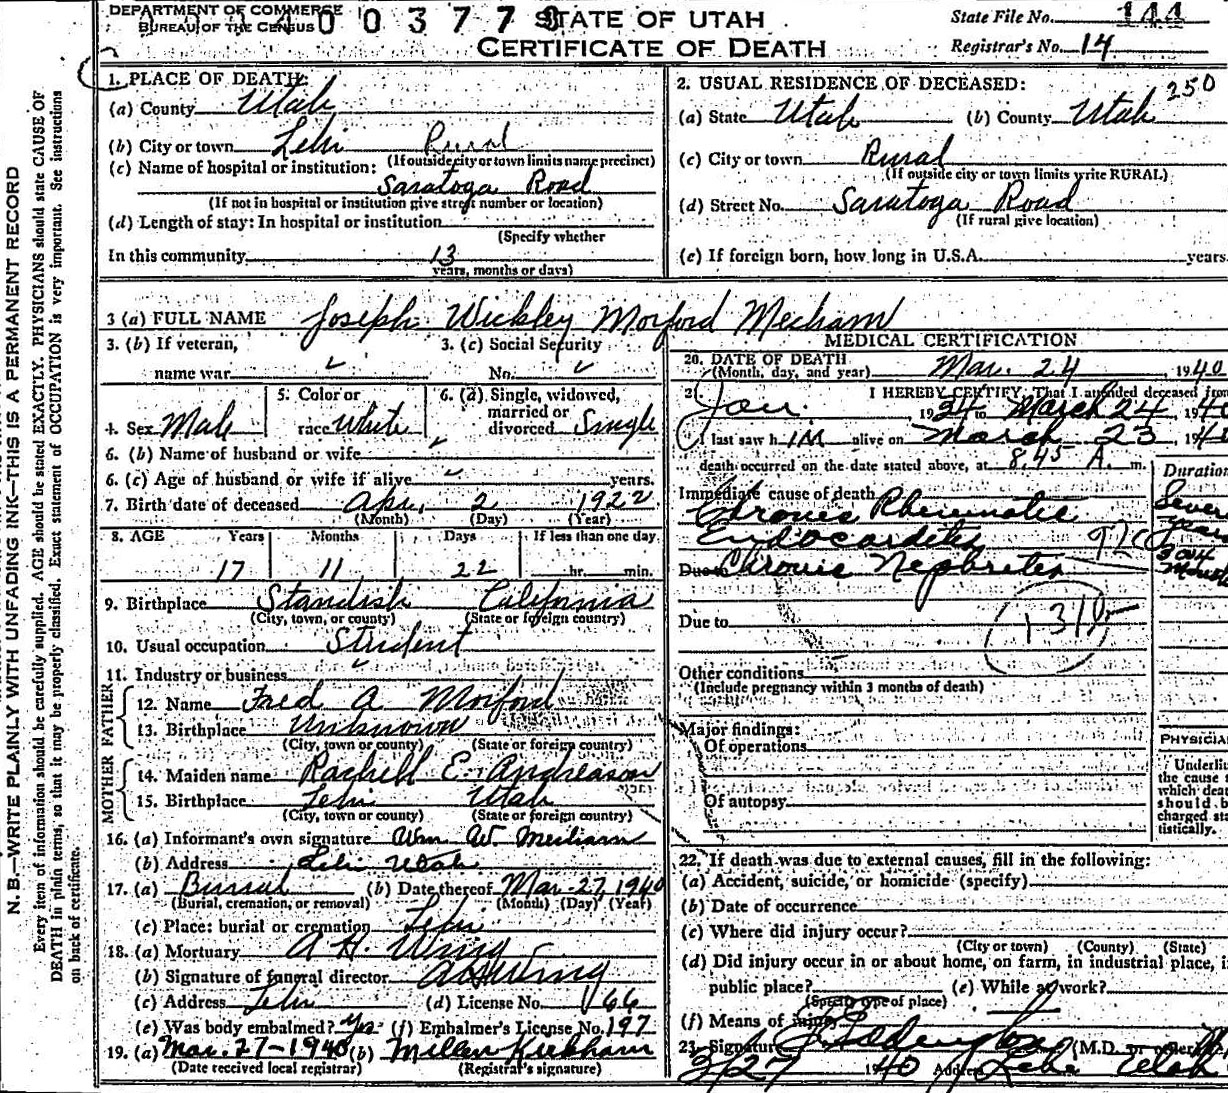 DEPARTMENT OF COMMERCE
BUREAU OF THE CENSUS
0 0 3 7 7
STATE OF UTAH
CERTIFICATE OF DEATH
State File No. 144
Registrar's No. 14
N. B.—WRITE PLAINLY WITH UNFADING INK—THIS IS A PERMANENT RECORD
Every item of information should be carefully supplied. AGE should be stated EXACTLY. PHYSICIANS should state CAUSE OF
DEATH in plain terms, so that it may be properly classified. Exact statement of OCCUPATION is very important. See instructions
on back of certificate.
1. PLACE OF DEATH:
(a) County Utah
(b) City or town Lehi Rural
(If outside city or town limits name precinct)
(c) Name of hospital or institution:
Saratoga Road
(If not in hospital or institution give street number or location)
(d) Length of stay: In hospital or institution
(Specify whether
In this community 13
years, months or days)
2. USUAL RESIDENCE OF DECEASED: 250
(a) State Utah (b) County Utah
(c) City or town Rural
(If outside city or town limits write RURAL)
(d) Street No. Saratoga Road
(If rural give location)
(e) If foreign born, how long in U.S.A. years.
3 (a) FULL NAME Joseph Wickley Morford Mecham
3. (b) If veteran, 3. (c) Social Security
name war No.
4. Sex Male 5. Color or race White 6. (a) Single, widowed, married or divorced Single
6. (b) Name of husband or wife
6. (c) Age of husband or wife if alive years.
7. Birth date of deceased Apr. 2 1922
(Month) (Day) (Year)
8. AGE Years Months Days If less than one day
17 11 22 hr. min.
9. Birthplace Standish California
(City, town, or county) (State or foreign country)
10. Usual occupation Student
11. Industry or business
FATHER
12. Name Fred A Morford
13. Birthplace Unknown
(City, town or county) (State or foreign country)
MOTHER
14. Maiden name Rachell E. Andreason
15. Birthplace Lehi Utah
(City, town or county) (State or foreign country)
16. (a) Informant's own signature Wm W. Mecham
(b) Address Lehi Utah
17. (a) Burial (b) Date thereof Mar-27, 1940
(Burial, cremation, or removal) (Month) (Day) (Year)
(c) Place: burial or cremation Lehi
18. (a) Mortuary A H. Wing
(b) Signature of funeral director A H Wing
(c) Address Lehi (d) License No. 66
(e) Was body embalmed? Yes (f) Embalmer's License No. 197
19. (a) Mar. 27-1940 (b) Millen Kirkham
(Date received local registrar) (Registrar's signature)
MEDICAL CERTIFICATION
20. DATE OF DEATH
(Month, day, and year) Mar. 24, 1940
21 I HEREBY CERTIFY, That I attended deceased from
Jan. , 1934 to March 24, 194
I last saw him alive on March 23, 194
death occurred on the date stated above, at 8.45 A. m.
Duration
Immediate cause of death
Chronic Rheumatic
Endocarditis 92c
Due to Chronic Nephritis
3 or 4
Due to
131b
Other conditions
(Include pregnancy within 3 months of death)
Major findings:
Of operations
Of autopsy
PHYSICIA
Underli
the cause t
which deat
should b
charged sta
tistically.
22. If death was due to external causes, fill in the following:
(a) Accident, suicide, or homicide (specify)
(b) Date of occurrence
(c) Where did injury occur?
(City or town) (County) (State)
(d) Did injury occur in or about home, on farm, in industrial place, i
public place? (e) While at work?
(Specify type of place)
(f) Means of injury
23. Signature Eddington (M.D. or other)
3/27 1940 Address Lehi Utah